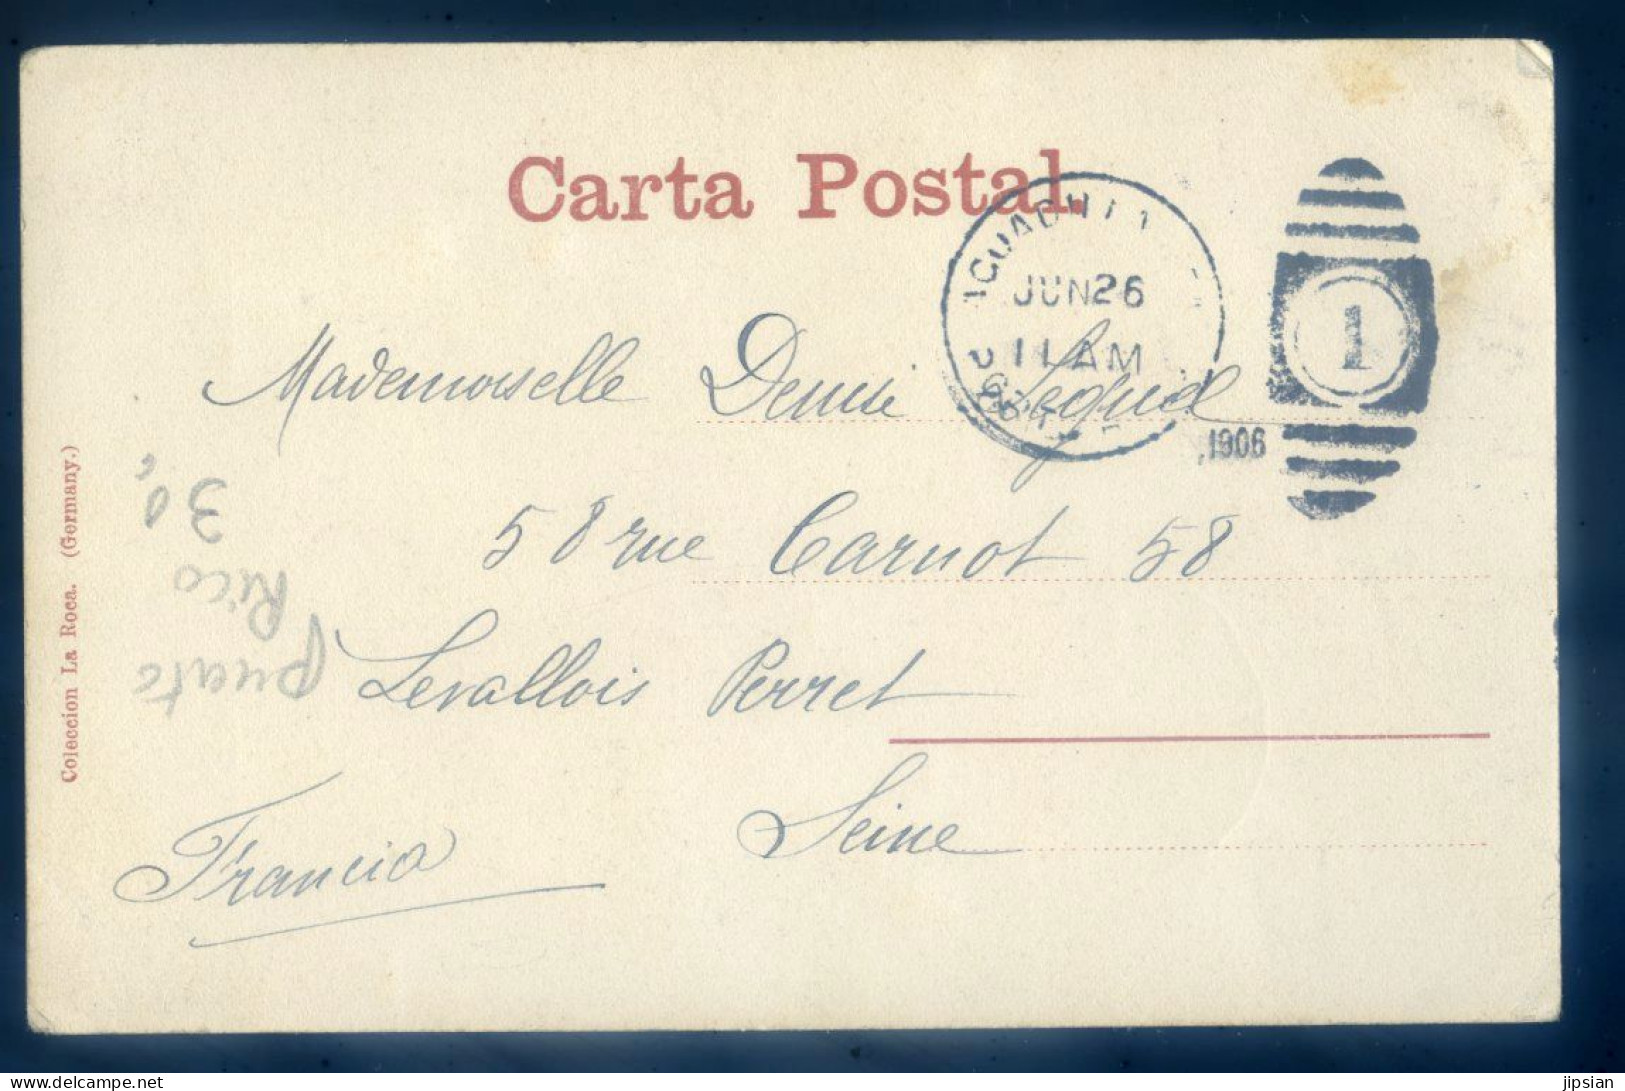 Carta Postal.
JUN 26
11 AM
1
1906
Mademoiselle Denise
58 rue Carnot 58
Levallois Perret
Seine
Francia
Coleccion La Roca. (Germany.)
Puerto
Rico
30,
jipsian
delcampe.net